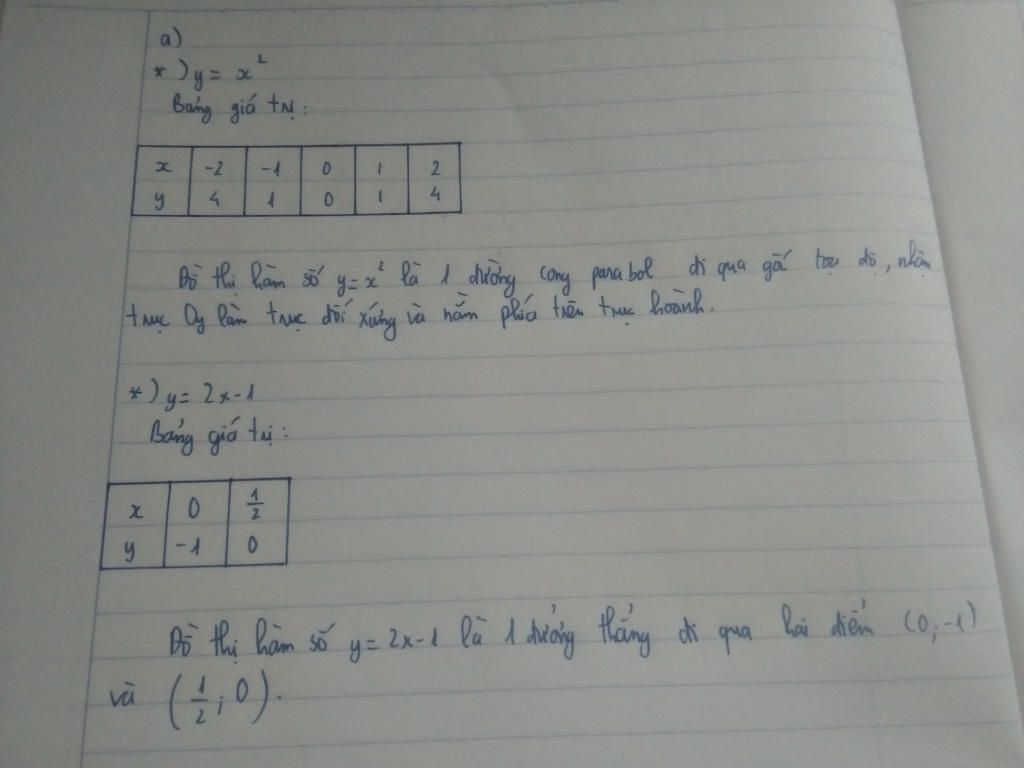 a)
*) y = x²
Bảng giá trị:
x -2 -1 0 1 2
y 4 1 0 1 4
Đồ thị hàm số y = x² là 1 đường cong parabol đi qua gấ tọa độ, nhận
trục Oy làm trục đối xứng và nằm phía trên trục hoành.
*) y = 2x-1
Bảng giá trị:
x 0 1/2
y -1 0
Đồ thị hàm số y = 2x-1 là 1 đường thẳng đi qua hai điểm (0; -1)
và (1/2; 0).